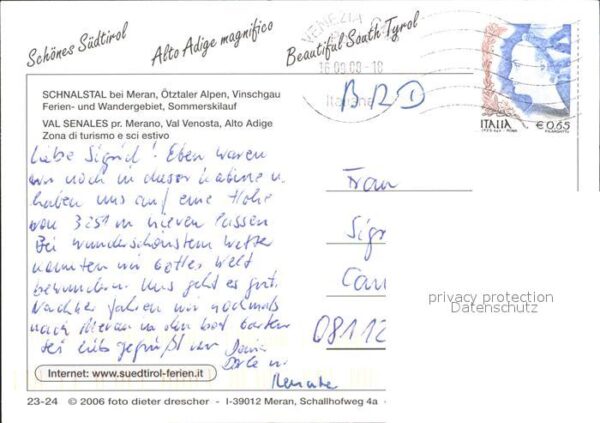 Schönes Südtirol
Alto Adige magnifico
Beautiful South Tyrol
VENEZIA
16.09.08-18
Italiane
ITALIA
€0,65
SCHNALSTAL bei Meran, Ötztaler Alpen, Vinschgau
Ferien- und Wandergebiet, Sommerskilauf
VAL SENALES pr. Merano, Val Venosta, Alto Adige
Zona di turismo e sci estivo
Liebe Sigrid! Eben waren
wir noch in dieser Kabine u.
haben uns auf eine Höhe
von 3251 m hieven lassen
Bei wunderschönstem Wetter
konnten wir Gottes Welt
bewundern. Uns geht es gut.
Nachher fahren wir nochmals
nach Meran in den bot. Garten
Sei lieb gegrüßt von Deine
u.
Renate
BRD
Frau
Sigr
Cam
08112
privacy protection
Datenschutz
Internet: www.suedtirol-ferien.it
23-24 © 2006 foto dieter drescher - I-39012 Meran, Schallhofweg 4a -